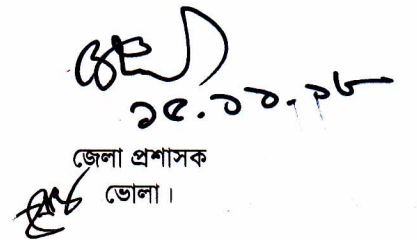 ১৫.১১.১৮
জেলা প্রশাসক
ভোলা।